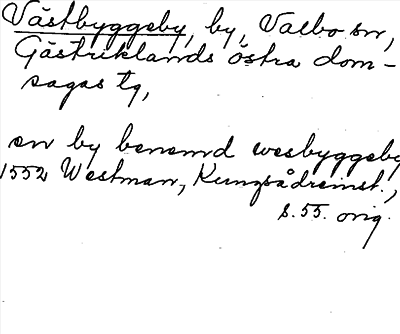 Västbyggeby, by, Valbo sn,
Gästriklands östra dom-
sagas tg,
en by benemd wesbyggeby
1552 Westman, Kungsådremst.,
s. 55. orig.